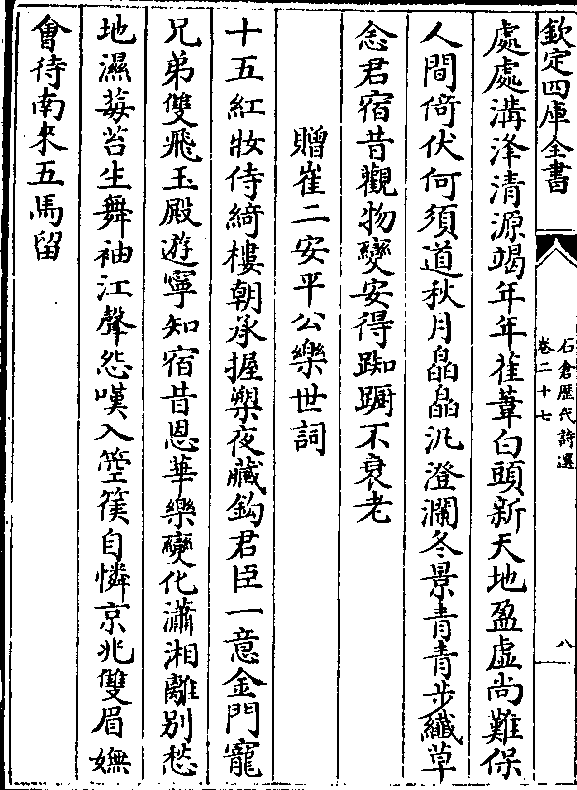 欽定四庫全書
石倉歷代詩選
卷二十七
八
處處溝洚清源竭年年萑葦白頭新天地盈虛尚難保
人間倚伏何須道秋月皛皛汎澄瀾冬景青青步纖草
念君宿昔觀物變安得踟躕不衰老
贈崔二安平公樂世詞
十五紅妝侍綺樓朝承握槊夜藏鈎君臣一意金門寵
兄弟雙飛玉殿遊寧知宿昔恩華樂變化瀟湘離別愁
地濕莓苔生舞袖江聲怨嘆入箜篌自憐京兆雙眉嫵
會待南來五馬留